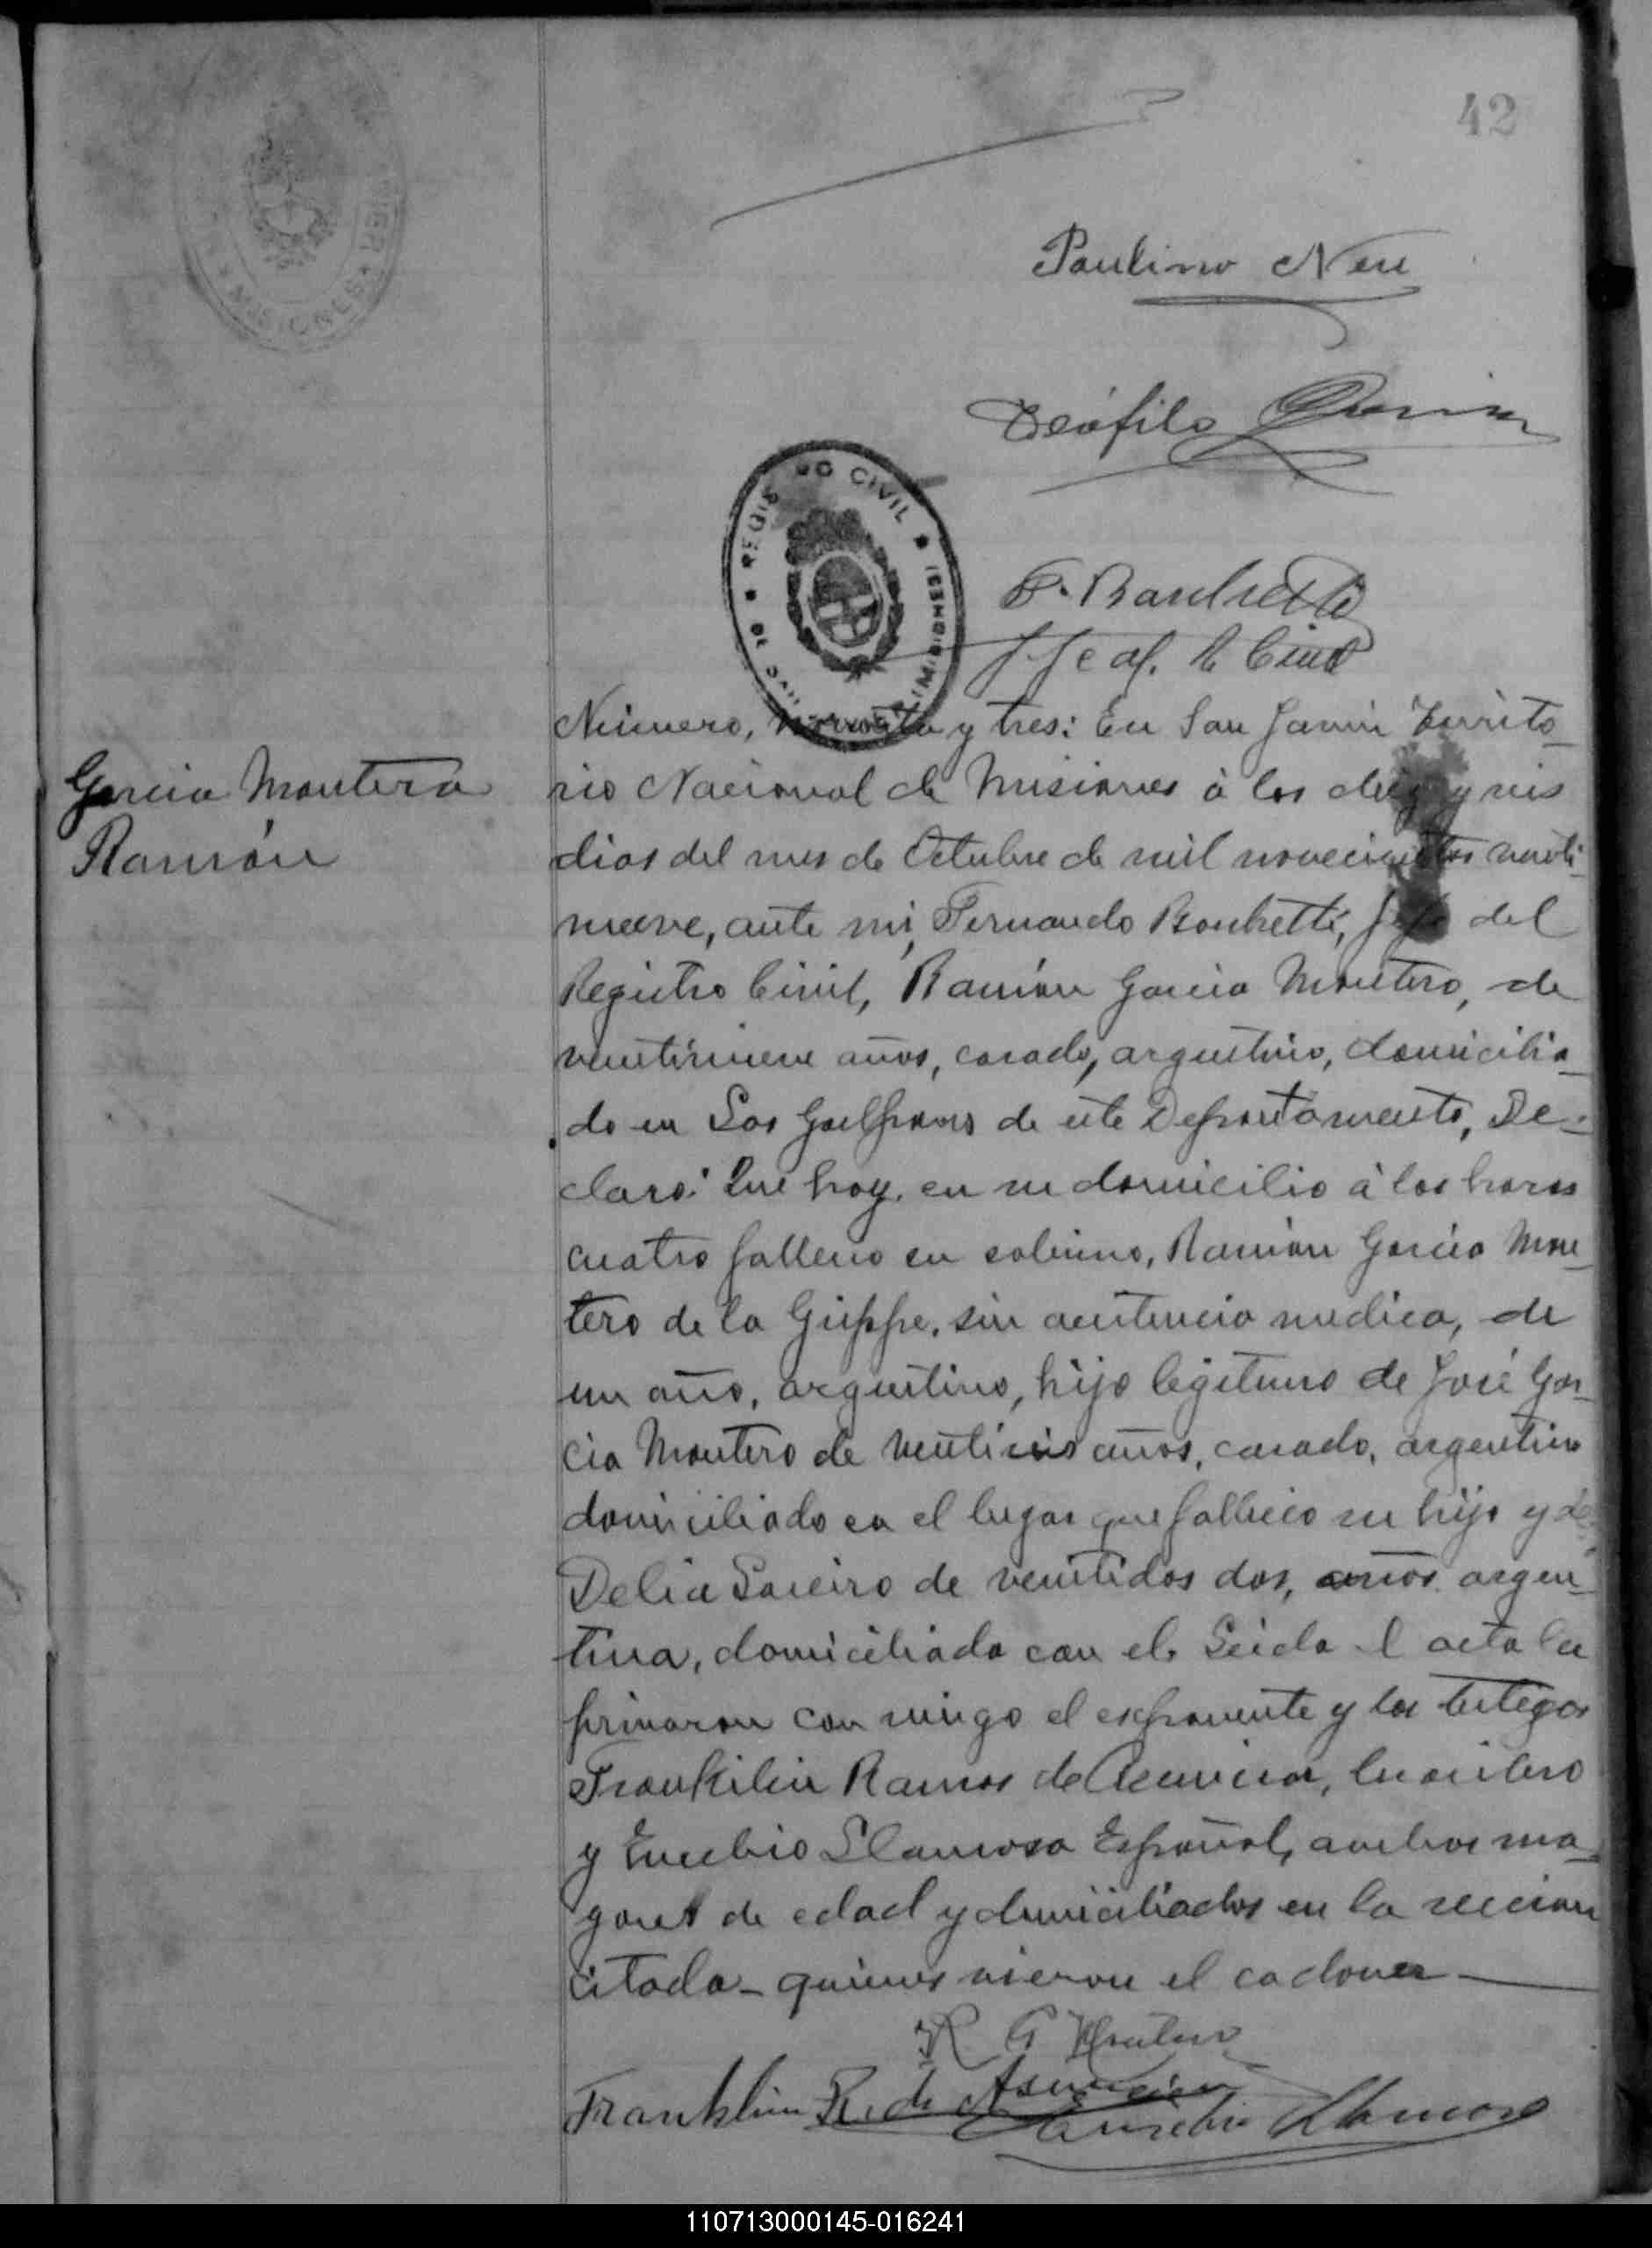 42
Paulino Neu
Teófilo
F. Banchetti
Jfe del R. Civil
REGIS CIVIL
Número, noventa y tres: En San Javier Territo_
García Montero
rio Nacional de Misiones á los diez y seis
Ramón
dias del mes de Octubre de mil novecientos venti-
nueve, ante mí, Fernando Banchetti, Jefe del
Registro Civil, Ramón García Montero, de
ventinueve años, casado, argentino, domicilia_
do en Los Galpones de este Departamento, De-
claró: Que hoy, en su domicilio á las horas
cuatro falleció su sobrino, Ramón García Mon_
tero de la Grippe, sin asistencia medica, de
un año, argentino, hijo legitimo de José Gar_
cia Montero de ventiseis años, casado, argentino
domiciliado en el lugar que falleció su hijo y de
Delia de ventidos dos, años argen_
tina, domiciliada con el. Leida el acta la
firmaron con migo el exponente y los testigos
Frankilin Ramos de Asuncion, brasilero
y Eusebio Llamosa Español, ambos ma_
yores de edad y domiciliados en la sección
citada_ quienes vieron el cadaver
R G Montero
Franklin R. de Asunción
Eusebio Llamosa
110713000145-016241